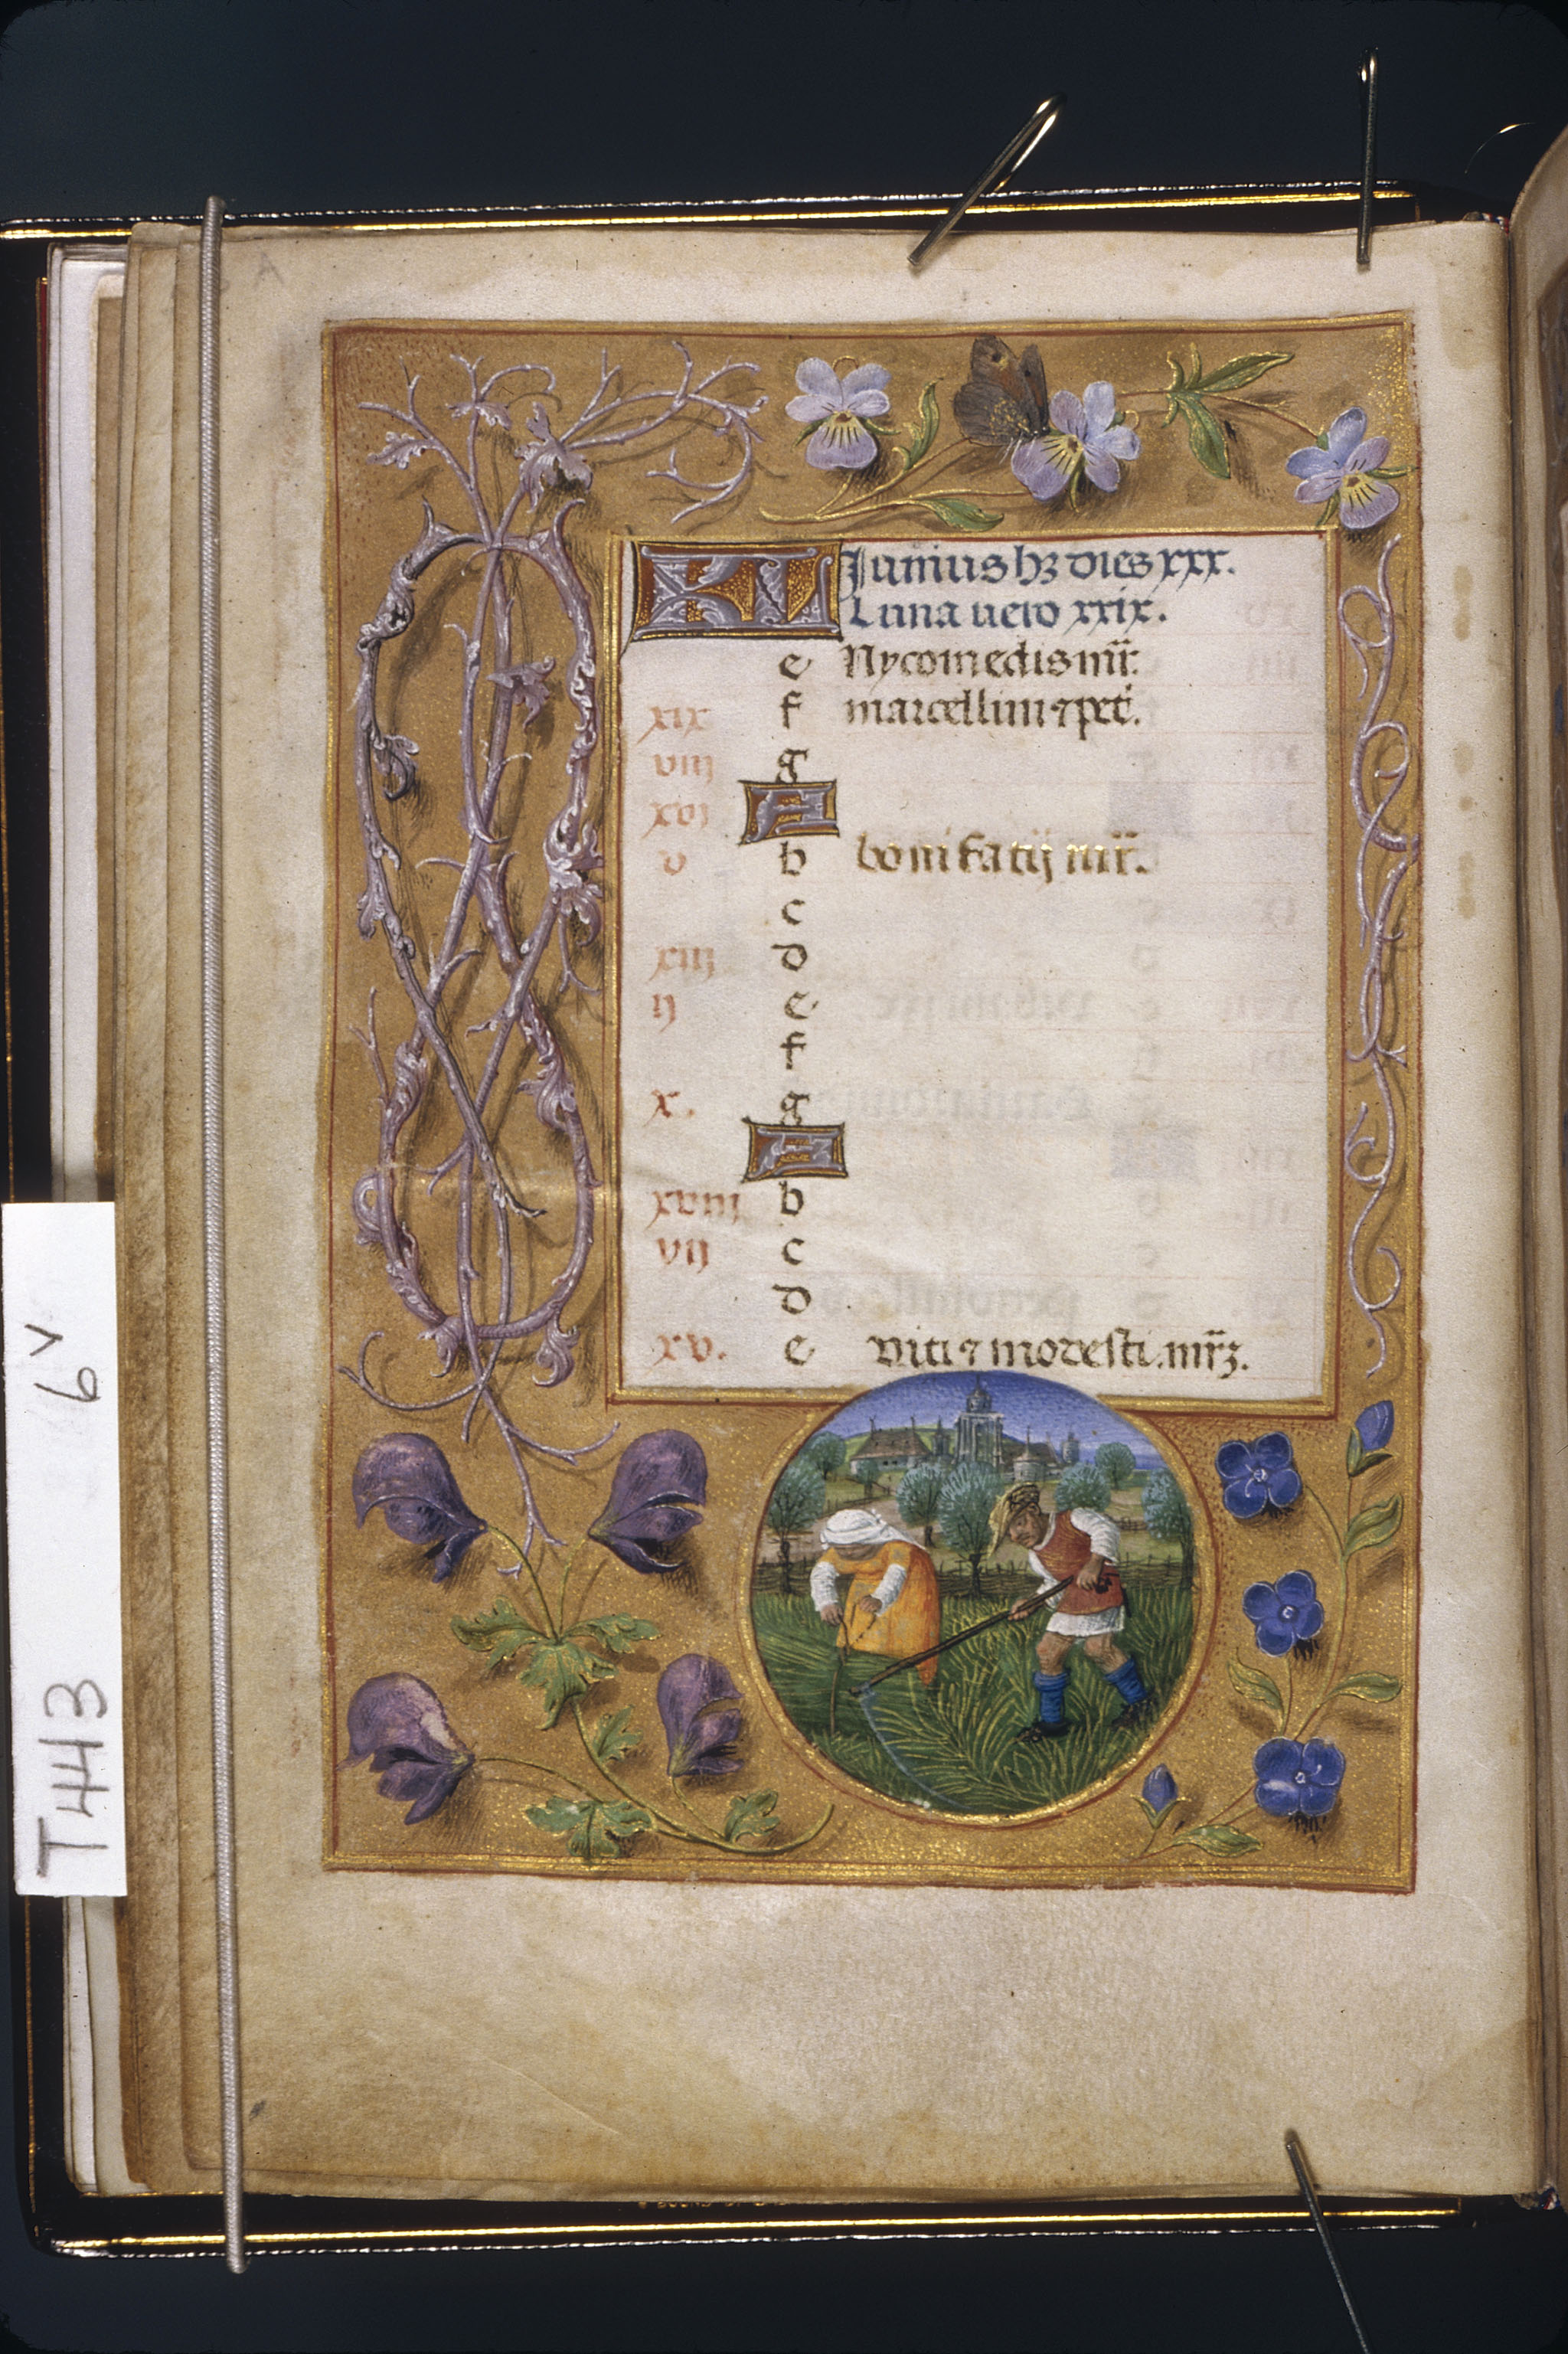 KL Junius hꝫ dies xxx.
Luna uero xxix.
e Nycomedis mr̃.
xix f marcellini ⁊ pet̃.
viij g
xvj A
v b bonifatij mr̃.
c
xiij d
ij e
f
x. g
A
xviij b
vij c
d
xv. e viti ⁊ modesti. mr̃ꝫ.
T443 6v